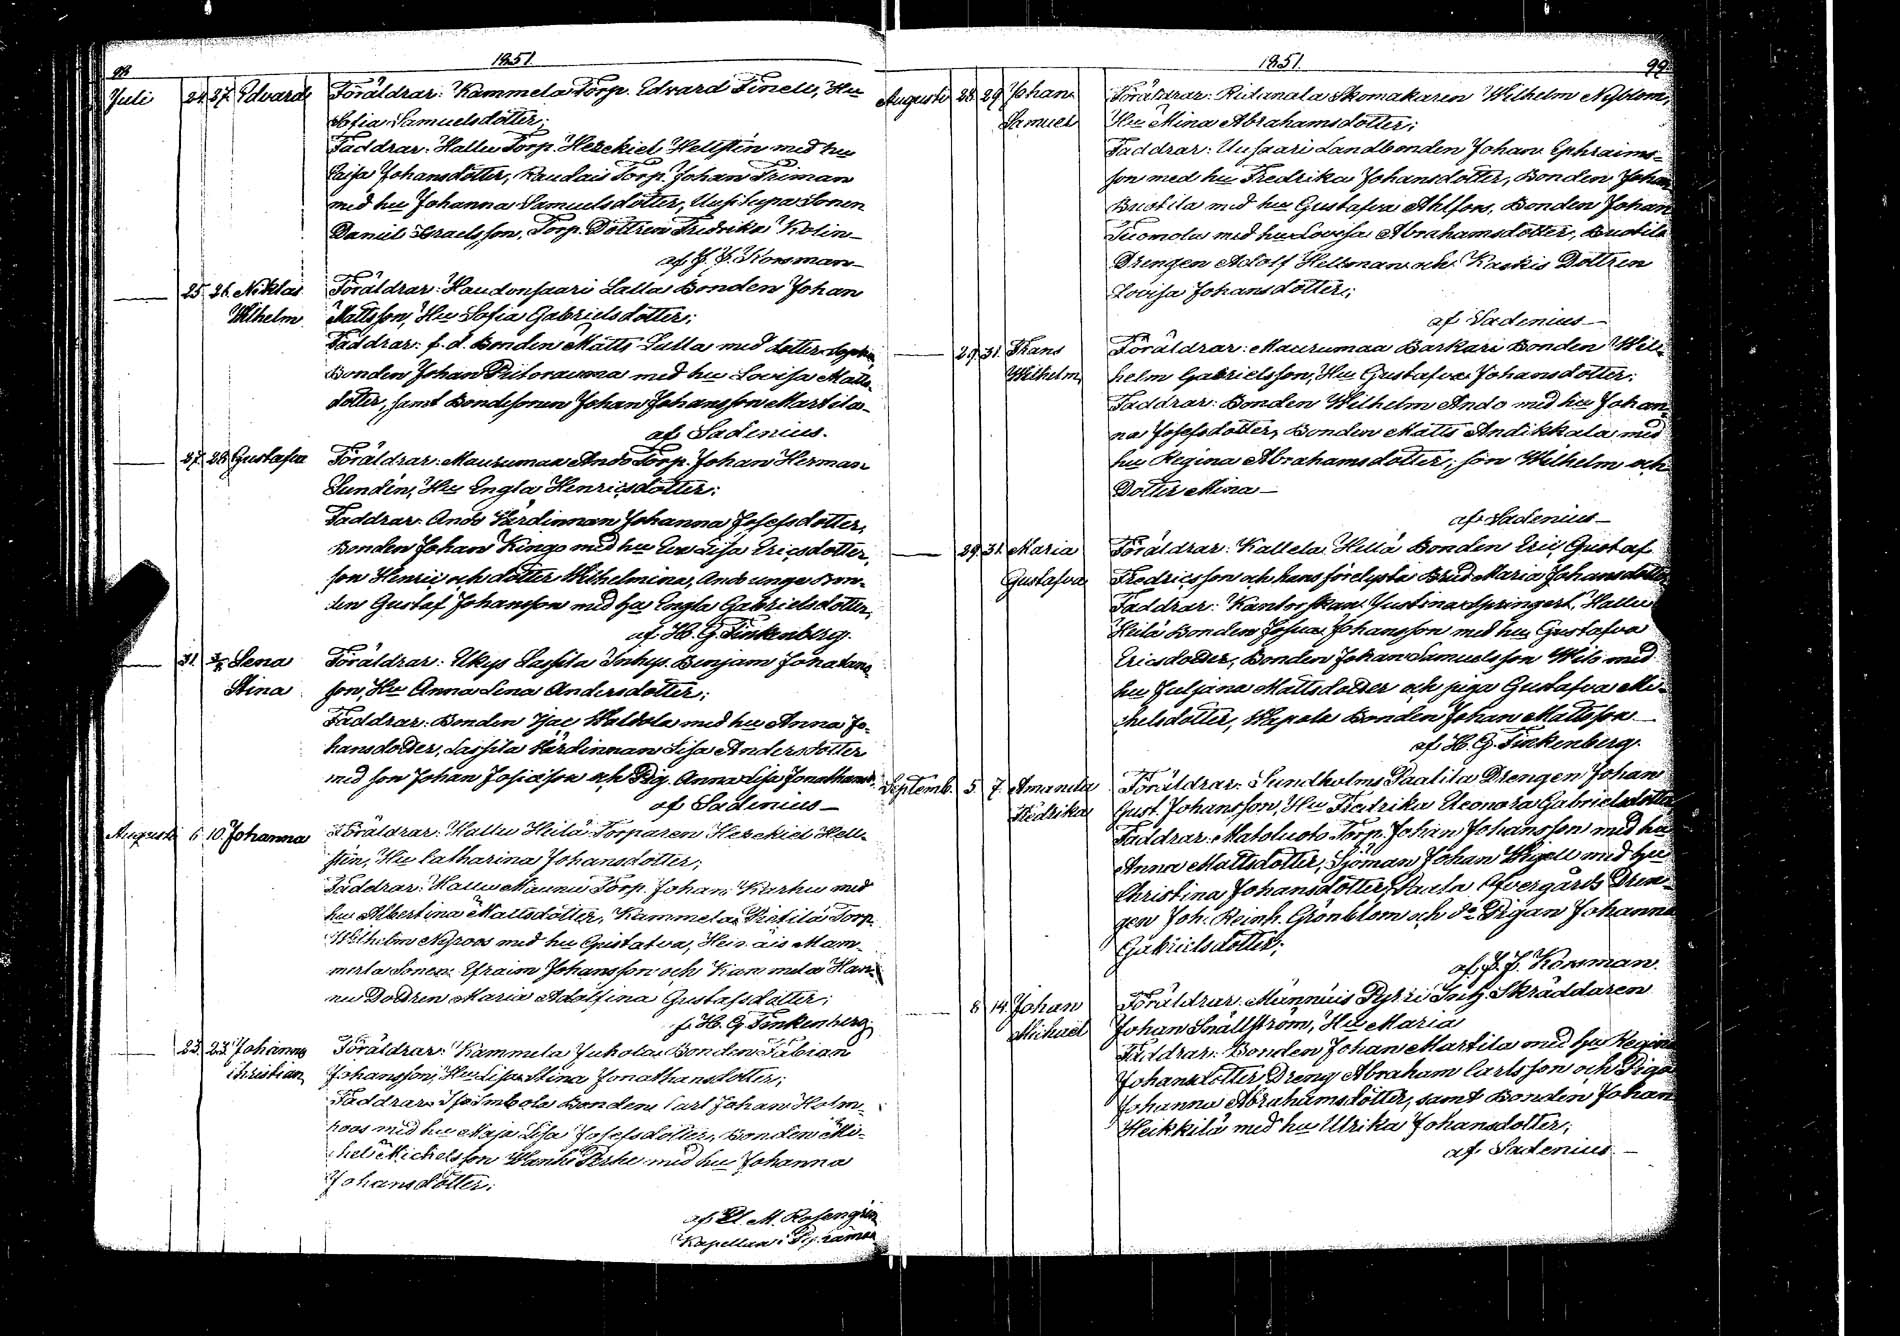 98
1851.
Juli 24. 27. Edvard Föräldrar: Kammela Torp. Edvard Finell, Hu
Sofia Samuelsdotter;
Faddrar: Hallu Torp. Hezekiel Hellstén med hu
Caisa Johansdotter, Raudais Torp. Johan Friman
med hu Johanna Samuelsdotter, Uusitupa Sonen
Daniel Israelsson, Torp. Dottren Fredrika Kolin
af J. J. Korsman
25. 26. Niklas Föräldrar: Haudonsaari Lalla Bonden Johan
Wilhelm Mattsson, Hu Sofia Gabrielsdotter;
Faddrar: f. d. Bonden Matts Lalla med dotter Sophia,
Bonden Johan Priiorauma med hu Lovisa Matts-
dotter, samt Bondesonen Johan Johansson Martila
af Sadenius.
27. 28. Gustafva Föräldrar: Maurumaa Ando Torp. Johan Herman
Sundén, Hu Engla Henricsdotter;
Faddrar: Ando Värdinnan Johanna Josefsdotter,
Bonden Johan Kingo med hu Eva Lisa Ericsdotter,
son Henric och dotter Wilhelmina, Ando unge Bon-
den Gustaf Johansson med hu Engla Gabrielsdotter,
af H. G. Finkenberg.
31. 3/8 Lena Föräldrar: Ukys Lassila Inhys. Benjam Jonathans
Stina son, Hu Anna Lena Andersdotter;
Faddrar: Bonden Isac Waldola med hu Anna Jo-
hansdotter, Lassila Värdinnan Lisa Andersdotter
med son Johan Josiasson och Pig. Anna Lisa Jonathansd.
af Sadenius
Augusti 6 10. Johanna Föräldrar: Hallu Heilä Torparen Hezekiel Hell-
stén, Hu Catharina Johansdotter;
Faddrar: Hallu Maunu Torp. Johan Karhu med
hu Albertina Mattsdotter, Kammela Pietilä Torp.
Wilhelm Nyroos med hu Gustafva, Mam-
merla Sonen Efraim Johansson och Kammela Han-
nu Dottren Maria Adolfina Gustafsdotter;
af H. G. Finkenberg.
23. 23. Johanna Föräldrar: Kammela Juhola Bonden Fabian
Christian Johansson, Hu Lisa Stina Jonathansdotter;
Faddrar: Bonden Carl Johan Holm-
roos med hu Maja Lisa Josefsdotter, Bonden Mi-
chel Michelsson Wanha Perhe med hu Johanna
Johansdotter;
af M. Rosengrén
Kapellan i Pyhämaa
1851.
99
Augusti 28. 29. Johan Föräldrar: Ridanala Skomakaren Wilhelm Nyblom,
Samuel Hu Mina Abrahamsdotter;
Faddrar: Uusaari Landbonden Johan Ephraims-
son med hu Fredrika Johansdotter, Bonden Johan
Buotila med hu Gustafva Ahlfors, Bonden Johan
Tuomola med hu Lovisa Abrahamsdotter, Buotila
Drengen Adolf Hellman och Kaskis Dottren
Lovisa Johansdotter;
af Sadenius
29. 31. Frans Föräldrar: Maurumaa Barkari Bonden Wil-
Wilhelm helm Gabrielsson, Hu Gustafva Johansdotter;
Faddrar: Bonden Wilhelm Ando med hu Johan-
na Josefsdotter, Bonden Matts Andikkala med
hu Regina Abrahamsdotter, son Wilhelm och
Dotter Mina
af Sadenius
29. 31. Maria Föräldrar: Kallela Heilä Bonden Eric Gustaf
Gustafva Fredricsson och hans förelysta Brud Maria Johansdotter
Faddrar: Kantorskan Justina Springert, Hallu
Heilä Bonden Josua Johansson med hu Gustafva
Ericsdotter, Bonden Johan Samuelsson Wilo med
hu Juljana Mattsdotter och piga Gustafva Mi-
chelsdotter, Wapola Bonden Johan Mattsson
af H. G. Finkenberg.
Septemb. 5. 7. Amanda Föräldrar: Sundholms Paatila Drengen Johan
Fredrika Gust. Johansson, Hu Fredrika Eleonora Gabrielsdotter
Faddrar: Mataluoto Torp. Johan Johansson med hu
Anna Mattsdotter, Sjöman Johan Wigell med hu
Christina Johansdotter, Paata Öfvergårds Dren-
gen Joh. Reinh. Grönblom och d:o Pigan Johanna
Gabrielsdotter;
af J. J. Korsman.
8 14. Johan Föräldrar: Männäis Pyhä Inh. Skräddaren
Michael Johan Snällström, Hu Maria
Faddrar: Bonden Johan Martila med hu Regina
Johansdotter, Dreng Abraham Carlsson och Piga
Johanna Abrahamsdotter, samt Bonden Johan
Heikkilä med hu Ulrika Johansdotter;
af Sadenius.